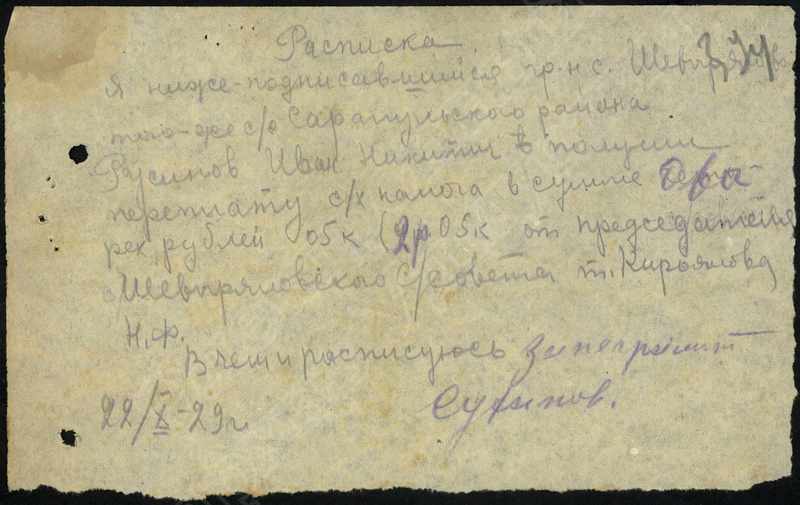 Расписка
Я ниже-подписавшийся гр-н с. Шевырялово
того-же с/с Сарапульского района
Русинов Иван Никитич в получении
переплату с/х налога в сумме два
рек, рублей 05 к (2р 05 к от председателя
Шевыряловского С/совета т. Кирьянова
Н.Ф.
В чем и расписуюсь
22/X-29 г.